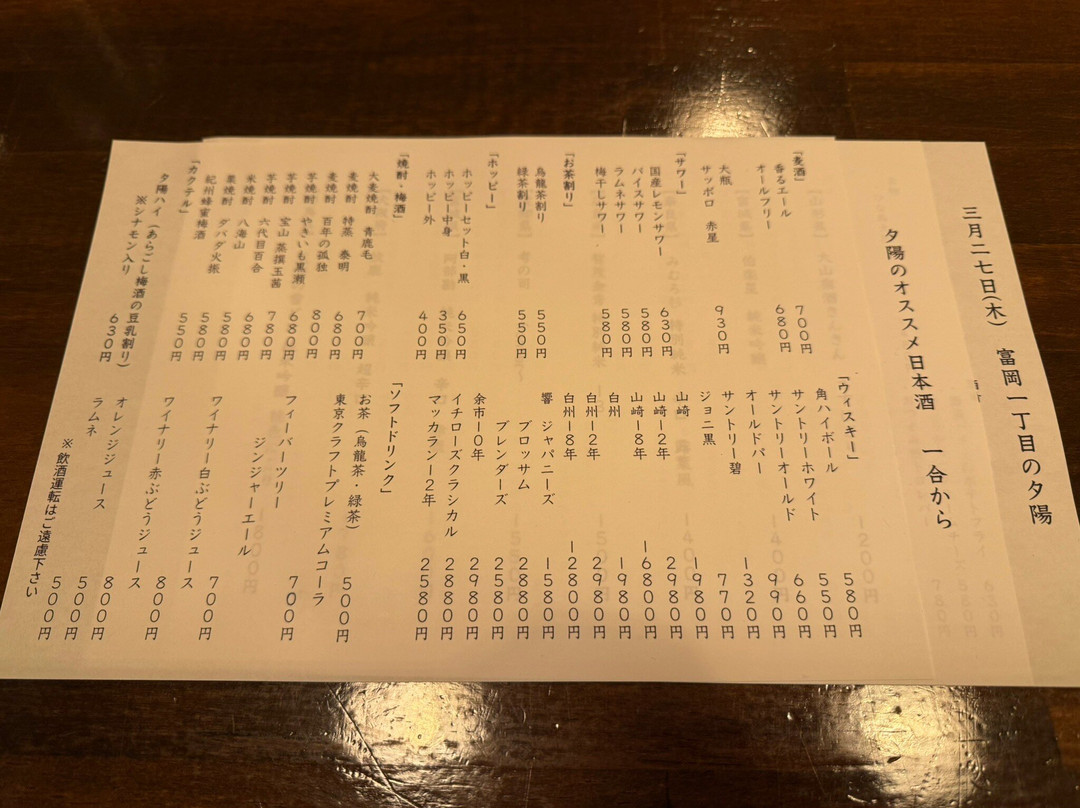 三月二七日(木) 富岡一丁目の夕陽
夕陽のオススメ日本酒 一合から
「麦酒」
香るエール 700円
オールフリー 680円
大瓶
サッポロ 赤星 930円
「サワー」
国産レモンサワー 630円
バイスサワー 580円
ラムネサワー 580円
梅干しサワー 580円
「お茶割り」
烏龍茶割り 550円
緑茶割り 550円
「ホッピー」
ホッピーセット白・黒 650円
ホッピー中身 350円
ホッピー外 400円
「焼酎・梅酒」
大麦焼酎 青鹿毛 700円
麦焼酎 特蒸 泰明 680円
麦焼酎 百年の孤独 800円
芋焼酎 やきいも黒瀬 680円
芋焼酎 宝山 蒸撰玉茜 780円
芋焼酎 六代目百合 680円
米焼酎 八海山 580円
栗焼酎 ダバダ火振 580円
紀州蜂蜜梅酒 550円
「カクテル」
夕陽ハイ(あらごし梅酒の豆乳割り)
※シナモン入り 630円
「ウィスキー」
角ハイボール 580円
サントリーホワイト 550円
サントリーオールド 660円
オールドパー 990円
サントリー碧 1320円
ジョニ黒 770円
山崎 1980円
山崎12年 2980円
山崎18年 16800円
白州 1980円
白州12年 2980円
白州18年 12800円
響 ジャパニーズ 1580円
ブロッサム 2880円
ブレンダーズ 2580円
余市10年 2980円
イチローズクラシカル 2880円
マッカラン12年 2580円
「ソフトドリンク」
お茶(烏龍茶・緑茶) 500円
東京クラフトプレミアムコーラ 700円
フィーバーツリー
ジンジャーエール 700円
ワイナリー白ぶどうジュース 800円
ワイナリー赤ぶどうジュース 800円
オレンジジュース 500円
ラムネ 500円
※飲酒運転はご遠慮下さい